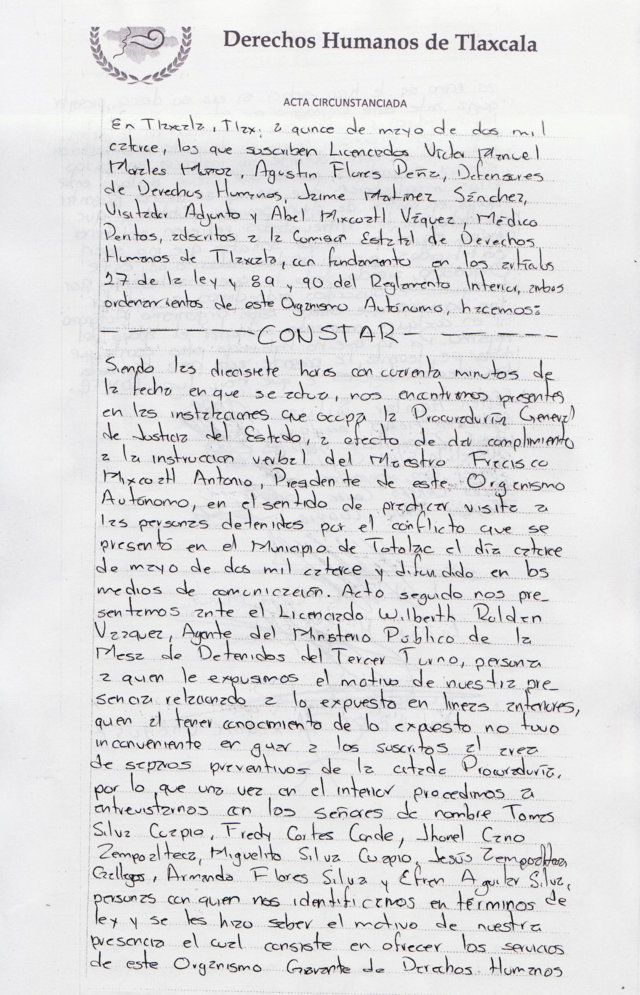 Derechos Humanos de Tlaxcala
ACTA CIRCUNSTANCIADA
En Tlaxcala, Tlax; a quince de mayo de dos mil
catorce, los que suscriben Licenciados Victor Manuel
Morales Muñoz, Agustin Flores Peña, Defensores
de Derechos Humanos, Jaime Martinez Sánchez,
Visitador Adjunto y Abel Mixcoatl Vázquez, Médico
Peritos, adscritos a la Comision Estatal de Derechos
Humanos de Tlaxcala, con fundamento en los articulos
27 de la ley y 89 y 90 del Reglamento Interior, ambos
ordenamientos de este Organismo Autónomo, hacemos:
- - - - - - - CONSTAR - - - - - - -
Siendo las diecisiete horas con cuarenta minutos de
la fecha en que se actua, nos encontramos presentes
en las instalaciones que ocupa la Procuraduría General
de Justicia del Estado, a efecto de dar cumplimiento
a la instruccion verbal del Maestro Francisco
Mixcoatl Antonio, Presidente de este Organismo
Autónomo, en el sentido de practicar visita a
las personas detenidas por el conflicto que se
presentó en el Municipio de Totolac el día catorce
de mayo de dos mil catorce y difundido en los
medios de comunicación. Acto seguido nos pre-
sentamos ante el Licenciado Wilberth Roldan
Vazquez, Agente del Ministerio Público de la
Mesa de Detenidos del Tercer Turno, persona
a quien le expusimos el motivo de nuestra pre-
sencia relacionado a lo expuesto en lineas anteriores,
quien al tener conocimiento de lo expuesto no tuvo
inconveniente en guiar a los suscritos al area
de separos preventivos de la citada Procuraduría.
por lo que una vez en el interior procedimos a
entrevistarnos con los señores de nombre Tomas
Silva Cuapio, Fredy Cortes Conde, Jhonel Cano
Zempoalteca, Miguelito Silva Cuapio, Jesús Zempoalteca
Gallegos, Armando Flores Silva y Efren Aguilar Silva,
personas con quien nos identificamos en términos de
ley y se les hizo saber el motivo de nuestra
presencia el cual consiste en ofrecer los servicios
de este Organismo Garante de Derechos Humanos